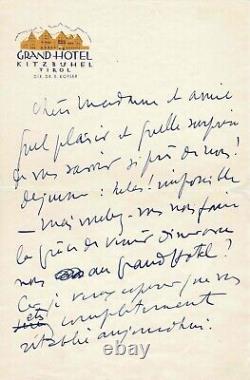 GRAND-HOTEL
KITZBÜHEL
TIROL
DIR. DR. E. KOFLER
Chère Madame et amie
Quel plaisir et quelle surprise
de vous savoir si près de nous!
déjeuner : hélas! impossible
— mais voulez-vous nous faire
la grâce de venir dîner avec
nous au Grand Hotel?
j' veux espérer que vous
êtes complètement
rétablie aujourd'hui.
© ebay